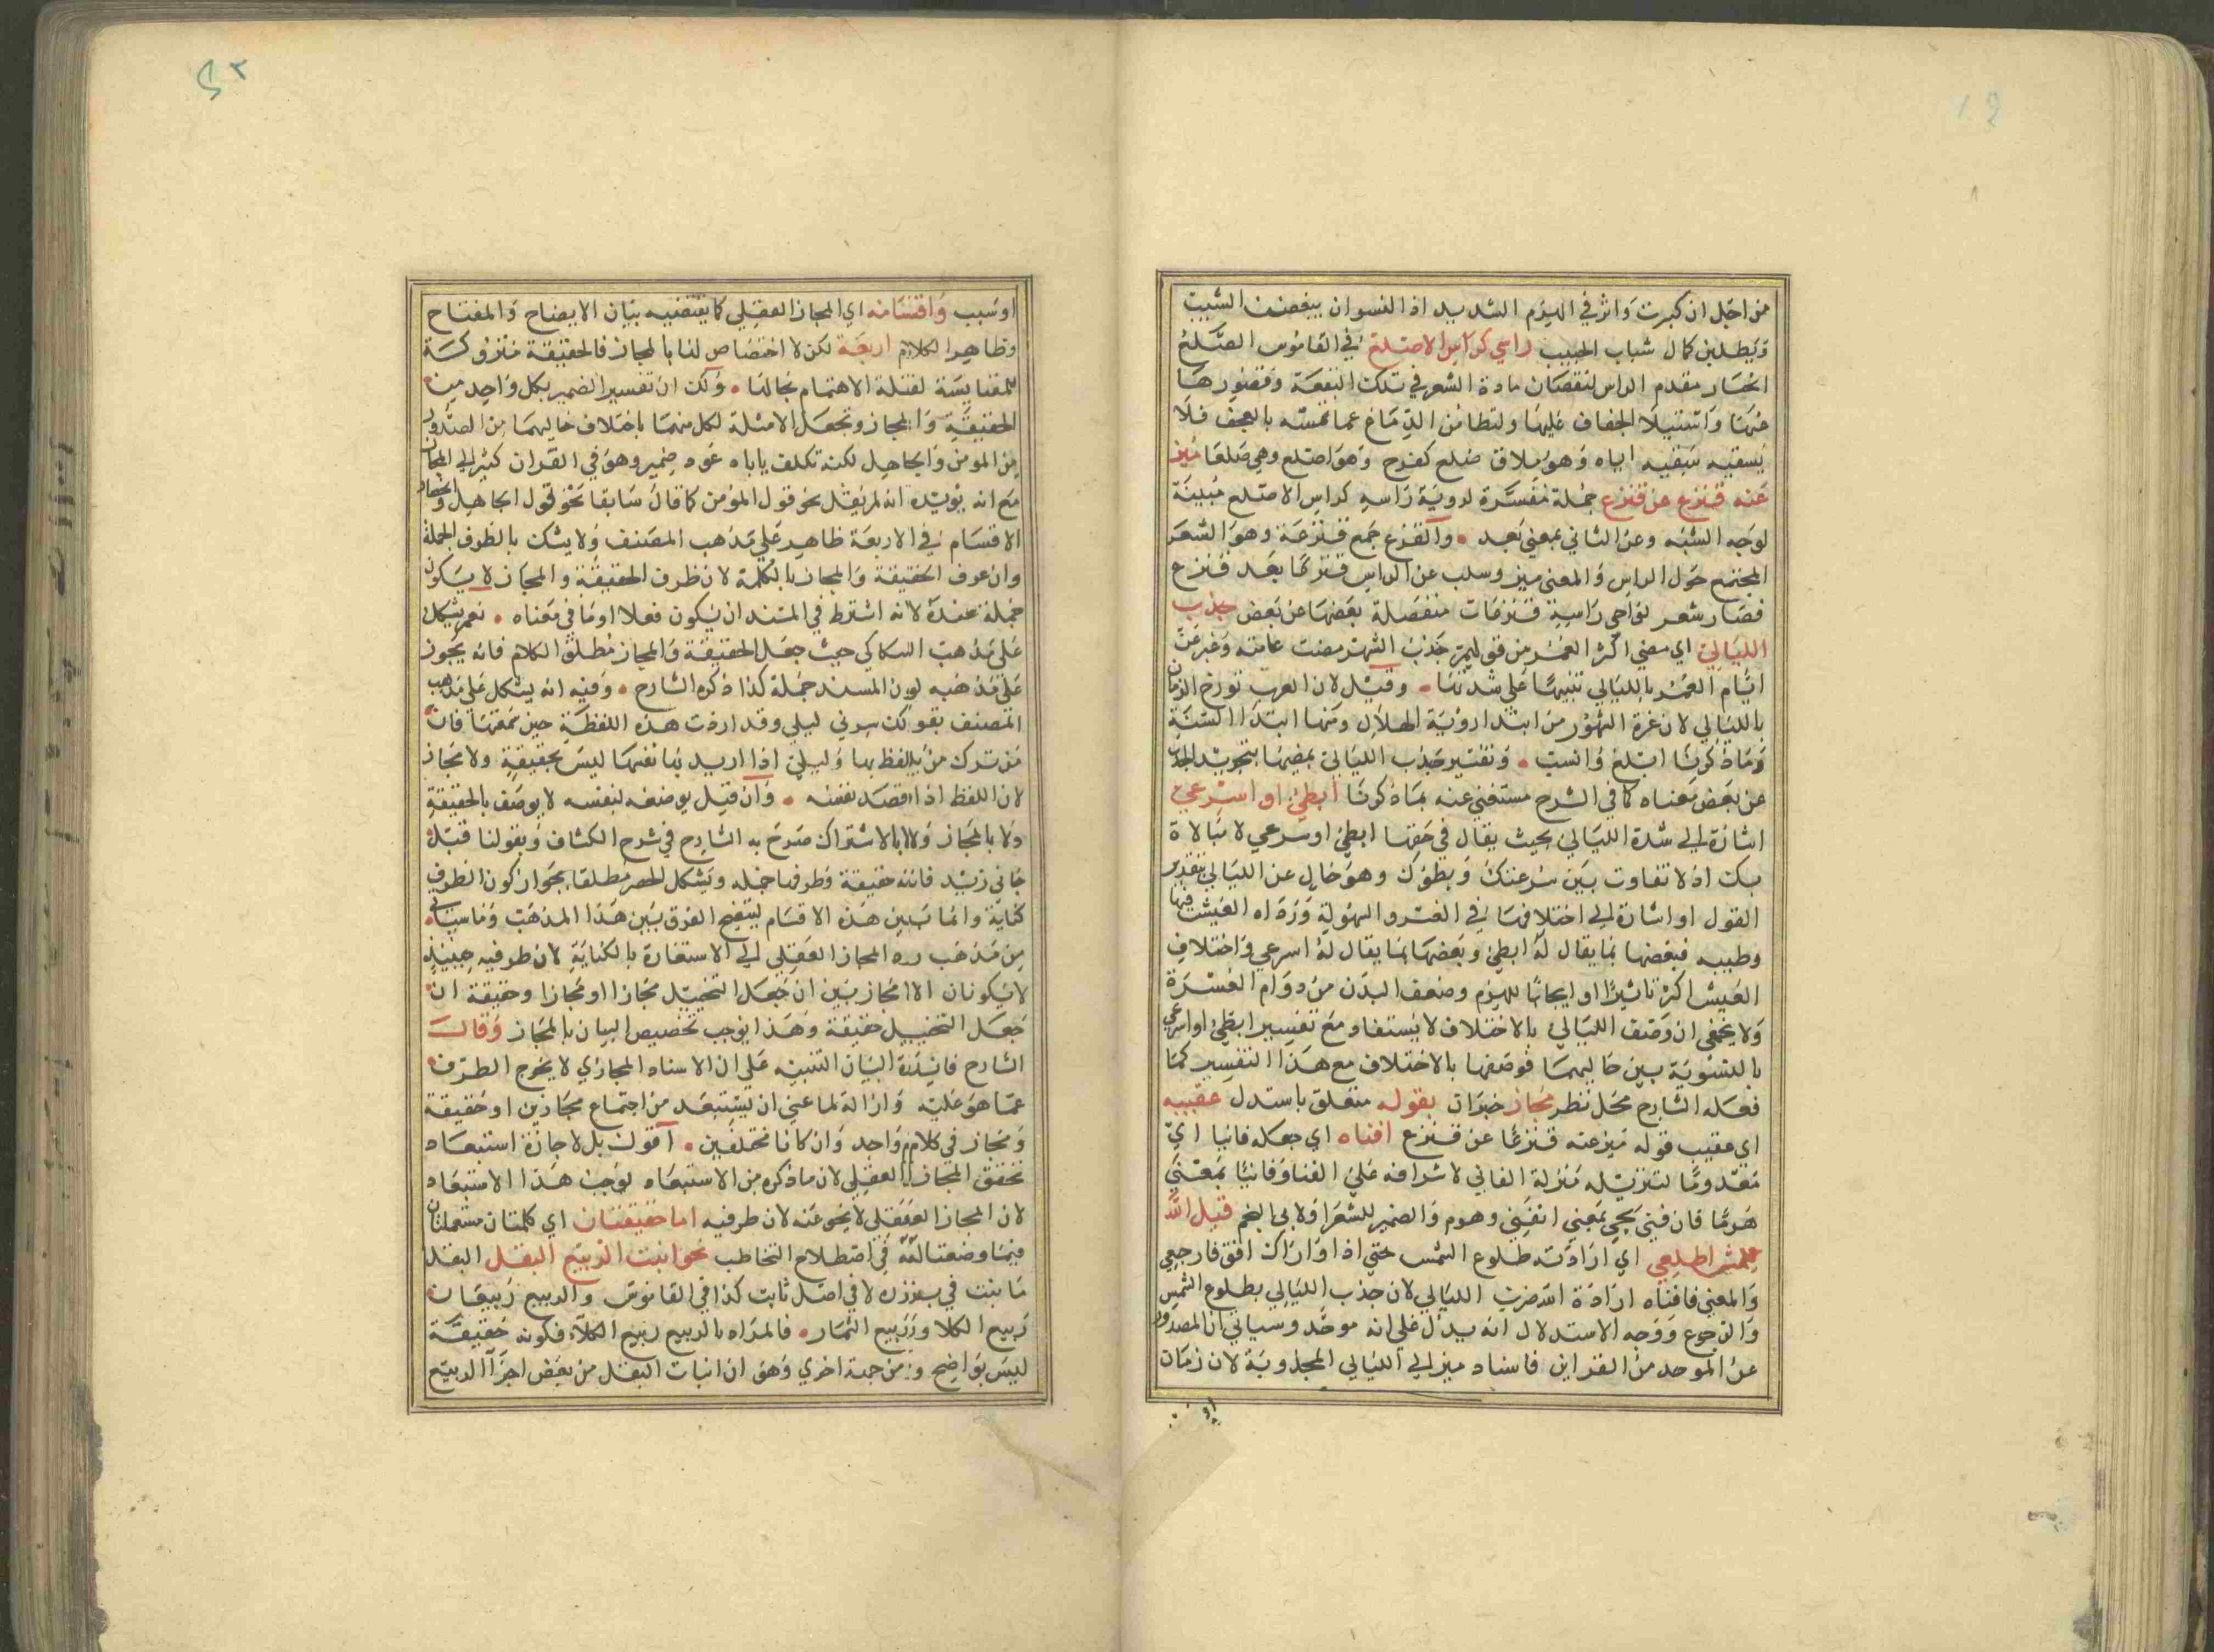 من اجل ان كبرت واثر في الهرم الشديد اذ النسوان يبغضن الشيب
ويطلبن كمال شباب الحبيب راسي كراس الاصلع في القاموس الصلع
انحسار مقدم الراس لنقصان مادة الشعر في تلك البقعة وقصورها
عنها واستيلاء الجفاف عليها ولتطامن الدماغ عما تمسه بالعجف فلا
يسقيه سقيه اياه وهو يلاق صلع كفرح وهو اصلع وهي صلعا ميز
عنه قنزع عن قنزع جملة مفسرة لروية راسه كراس الاصلع مبينة
لوجه الشبه وعن الثاني بمعني بعد والقنزع جمع قنزعة وهو الشعر
المجتمع حول الراس والمعني ميز وسلب عن الراس قنزعا بعد قنزع
فصار شعر نواحي راسه قنزعات منفصلة بعضها عن بعض جذب
الليالي اي مضي اكثر العمر من قوليهم جذب الشهر مضت عامته وعبر عن
ايام العمر بالليالي تنبيها علي شدتها وقيل لان العرب تورخ الزمان
بالليالي لان غرة الشهور من ابتدا روية الهلال ومنها ابتدا السنة
وما ذكرنا ابلغ وانسب وتفسير جذب الليالي بمضيها بتجريد الجذب
عن بعض معناه كما في الشرح مستغني عنه بما ذكرنا ابطئي او اسرعي
اشارة الي شدة الليالي بحيث يقال في حقها ابطئي او سرعي لا مبالاة
بك اذ لا تفاوت بين سرعتك وبطؤك وهو حال عن الليالي بتقدير
القول او اشارة الي اختلافها في العسر والسهولة ورداه العيش فيها
وطيبه فبعضها بما يقال له ابطئي وبعضها بما يقال له اسرعي واختلاف
العيش اكثر تاثيرا او ايجابا للهرم وضعف البدن من دوام العسرة
ولا يخفي ان وصف الليالي بالاختلاف لا يستفاد مع تفسير ابطئي او اسرعي
بالتسوية بين حاليهما فوصفها بالاختلاف مع هذا التفسير كما
فعله الشارح محل نظر مجاز خبران بقوله متعلق باستدل عقيبه
اي عقيب قوله ميز عنه قنزعا عن قنزع افناه اي جعله فانيا اي
معدوما لتنزيله منزلة الفاني لاشرافه علي الفنا وفانيا بمعني
هرما فان فني يجي بمعني انفني وهرم والضمير للشعر اولابي النجم قيل الله
للشمس اطلعي اي ارادته طلوع الشمس حتي اذا واراك افق فارجعي
والمعني فافناه ارادة الله ضرب الليالي لان جذب الليالي بطلوع الشمس
والرجوع ووجه الاستدلال انه يدل علي انه موحد وسياتي ان المصدور
عن الموحد من القراين فاسناد ميز الي الليالي المجذوبة لان زمان
او
اوسبب واقسامه اي المجاز العقلي كما يقتضيه بيان الايضاح والمفتاح
وظاهر الكلام اربعة لكن لا اختصاص لها بالمجاز فالحقيقة متروكة
للمقايسة لقلة الاهتمام بحالها ولك ان تفسير الضمير بكل واحد من
الحقيقة والمجاز وتجعل الامثلة لكل منهما باختلاف حاليهما من الصدور
من المومن والجاهل لكنه تكلف ياباه عود ضمير وهو في القران كثير الي المجاز
مع انه يؤيده انه لم يقل نحو قول المؤمن كما قال سابقا نحو قول الجاهل وانحصار
الاقسام في الاربعة ظاهر علي مذهب المصنف ولا يشك بالظرف الجملة
وان عرف الحقيقة والمجاز بالكلمة لان ظرف الحقيقة والمجاز لا يكون
جملة عنده لانه اشترط في المسند ان يكون فعلا او ما في معناه نعم يشكل
علي مذهب السكاكي حيث جعل الحقيقة والمجاز مطلق الكلام فانه يجوز
علي مذهبه لورن المسند جملة كذا ذكره الشارح وفيه انه يشكل علي مذهب
المصنف بقولك سرني ليلي وقد اردت هذه اللفظة حين سمعتها فان
من ترك من يلفظ بها وليلي اذا اريد بها نفسها ليس بحقيقة ولا مجاز
لان اللفظ اذا قصد نفسه وان قيل بوضعه لنفسه لا يوصف بالحقيقة
ولا بالمجاز ولا بالاشتراك صرح به الشارح في شرح الكشاف وبقولنا قبل
جاني زيد فانه حقيقة وطرفها جملة ويشكل الحصر مطلقا بجواز كون الطرف
كناية وانما تبين هذه الاقسام ليتضح الفرق بين هذا المذهب وما سياتي
من مذهب رد المجاز العقلي الي الاستعارة بالكناية لان طرفيه حينئذ
لا يكونان الا مجازين ان جعل التخييل مجازا او مجازا وحقيقة ان
جعل التخييل حقيقة وهذا يوجب تخصيص البيان بالمجاز وقال
الشارح فايدة البيان التنبيه علي ان الاسناد المجازي لا يخرج الطرف
عما هو عليه وازالة لما عني ان يستبعد من اجتماع مجازين او حقيقة
ومجاز في كلام واحد وان كانا مختلفين اقول بل لاجازة استبعاد
تحقق المجاز العقلي لان ما ذكره من الاستبعاد يوجب هذا الاستبعاد
لان المجاز العقلي لا يخو عنه لان طرفيه اما حقيقتان اي كلمتان مستعملتان
فيما وضعتا له في اصطلاح التخاطب نحو انبت الربيع البقل البقل
ما ينبت في بزره لا في اصل ثابت كذا في القاموس والربيع ربيعان
ربيع الكلا وربيع الثمار فالمراد بالربيع ربيع الكلاء فكونه حقيقة
ليس بواضح ومن جهة اخري وهو ان انبات البقل من بعض اجزا الربيع